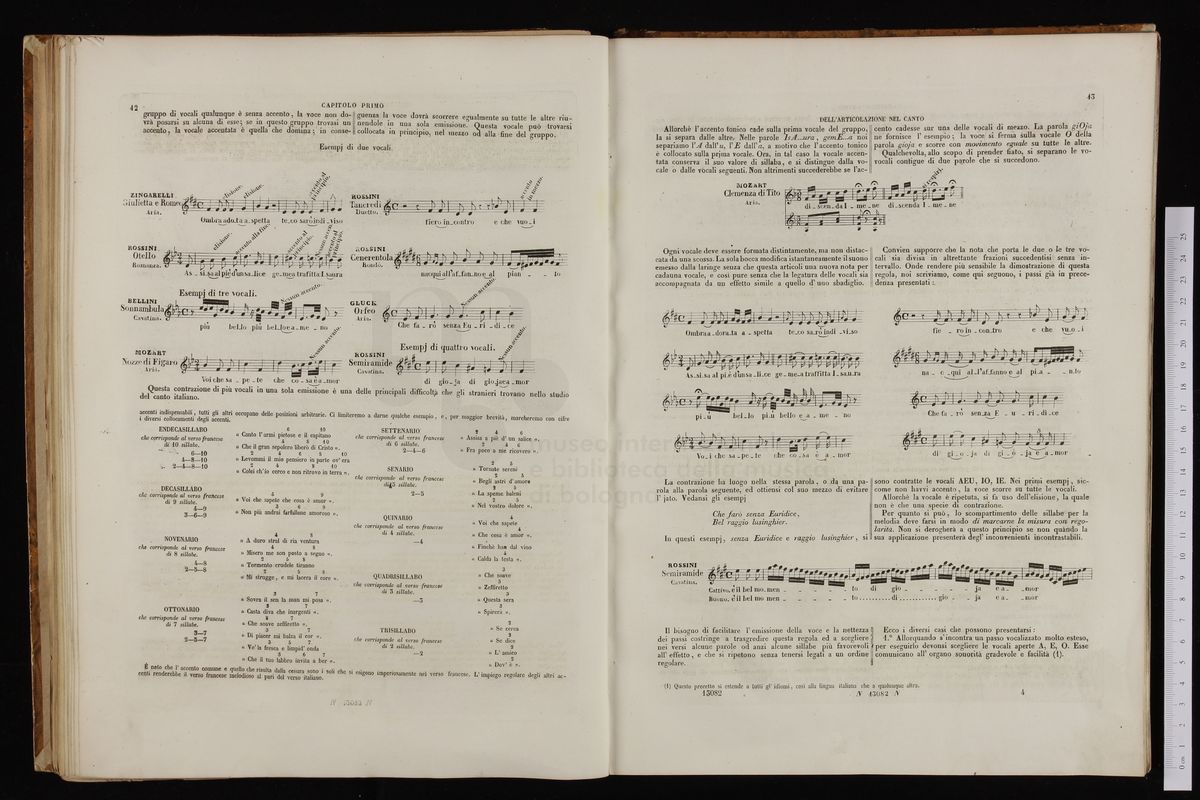 42
CAPITOLO PRIMO
gruppo di vocali qualunque è senza accento, la voce non do-
vrà posarsi su alcuna di esse; se in questo gruppo trovasi un
accento, la vocale accentata è quella che domina; in conse-
guenza la voce dovrà scorrere egualmente su tutte le altre riu-
nendole in una sola emissione. Questa vocale può trovarsi
collocata in principio, nel mezzo od alla fine del gruppo.
Esempj di due vocali.
ZINGARELLI
Giulietta e Romeo
Aria.
elisione.
elisione.
accento al principio.
Ombra ado_ta a_spetta te_co sarò indi_viso
ROSSINI
Tancredi
Duetto.
accento in mezzo.
fiero in_contro e che vuo_i
ROSSINI
Otello
Romanza.
elisione.
accento alla fine.
As_si_sa al piè d'un sa_lice ge_mea traffitta I_saura
ROSSINI
Cenerentola
Rondò.
nacqui all'af_fan_no e al pian _ _ to
Esempj di tre vocali.
BELLINI
Sonnambula
Cavatina.
Nessun accento.
più bel_lo più bel_lo e a_me _ no
GLUCK
Orfeo
Aria.
Nessun accento.
Che fa_rò senza Eu_ri_di_ce
MOZART
Nozze di Figaro
Aria.
Nessun accento.
Voi che sa_pe_te che co_sa è a_mor
Esempj di quattro vocali.
ROSSINI
Semiramide
Cavatina.
Nessun accento.
di gio_ja di gio_ja e a_mor
Questa contrazione di più vocali in una sola emissione è una delle principali difficoltà che gli stranieri trovano nello studio
del canto italiano.
accenti indispensabili, tutti gli altri occupano delle posizioni arbitrarie. Ci limiteremo a darne qualche esempio, e, per maggior brevità, marcheremo con cifre
i diversi collocamenti degli accenti.
ENDECASILLABO
che corrisponde al verso francese
di 10 sillabe.
6—10
4—8—10
2—4—8—10
6 10
» Canto l'armi pietose e il capitano
4 8 10
» Che il gran sepolcro liberò di Cristo ».
2 4 6 8 10
» Levommi il mio pensiero in parte ov'era
2 4 8 10
» Colei ch'io cerco e non ritrovo in terra ».
DECASILLABO
che corrisponde al verso francese
di 9 sillabe.
4—9
3—6—9
4 9
» Voi che sapete che cosa è amor ».
3 6 9
» Non più andrai farfallone amoroso ».
NOVENARIO
che corrisponde al verso francese
di 8 sillabe.
4—8
2—5—8
4 8
» A duro stral di ria ventura
4 8
» Misero me son posto a segno ».
2 5 8
» Tormento crudele tiranno
2 5 8
» Mi strugge, e mi lacera il core ».
OTTONARIO
che corrisponde al verso francese
di 7 sillabe.
3—7
2—5—7
3 7
» Sovra il sen la man mi posa ».
3 7
» Casta diva che inargenti ».
3 7
» Che soave zeffiretto ».
3 7
» Di piacer mi balza il cor ».
3 5 7
» Ve' la fresca e limpid' onda
3 6 7
» Che il tuo labbro invita a ber ».
SETTENARIO
che corrisponde al verso francese
di 6 sillabe.
2—4—6
2 4 6
» Assisa a piè d'un salice ».
2 4 6
» Fra poco a me ricovero ».
SENARIO
che corrisponde al verso francese
di 5 sillabe.
2—5
2 5
» Tornate sereni
2 5
» Begli astri d'amore
2 5
» La speme baleni
2 5
» Nel vostro dolore ».
QUINARIO
che corrisponde al verso francese
di 4 sillabe.
—4
4
» Voi che sapete
4
» Che cosa è amor ».
4
» Finchè han dal vino
4
» Calda la testa ».
QUADRISILLABO
che corrisponde al verso francese
di 3 sillabe.
—3
3
» Che soave
3
» Zeffiretto
3
» Questa sera
3
» Spirerà ».
TRISILLABO
che corrisponde al verso francese
di 2 sillabe.
—2
2
» Se cerca
2
» Se dice
2
» L' amico
2
» Dov' è ».
È noto che l' accento comune e quello che risulta dalla cesura sono i soli che si esigono imperiosamente nel verso francese. L'impiego regolare degli altri ac-
centi renderebbe il verso francese melodioso al pari del verso italiano.
N 13082 N
43
DELL'ARTICOLAZIONE NEL CANTO
Allorchè l'accento tonico cade sulla prima vocale del gruppo,
la si separa dalle altre. Nelle parole IsA_ura, gemE_a noi
separiamo l'A dall'u, l'E dall'a, a motivo che l'accento tonico
è collocato sulla prima vocale. Ora, in tal caso la vocale accen-
tata conserva il suo valore di sillaba, e si distingue dalla vo-
cale o dalle vocali seguenti. Non altrimenti succederebbe se l'ac-
cento cadesse sur una delle vocali di mezzo. La parola giOja
ne fornisce l' esempio; la voce si ferma sulla vocale O della
parola gioja e scorre con movimento eguale su tutte le altre.
Qualchevolta, allo scopo di prender fiato, si separano le vo-
vocali contigue di due parole che si succedono.
MOZART
Clemenza di Tito
Aria.
respiri.
di_scen_da I_me_ne di_scenda I_me_ne
Ogni vocale deve essere formata distintamente, ma non distac-
cata da una scossa. La sola bocca modifica istantaneamente il suono
emesso dalla laringe senza che questa articoli una nuova nota per
cadauna vocale, e così pure senza che la legatura delle vocali sia
accompagnata da un effetto simile a quello d' uno sbadiglio.
Convien supporre che la nota che porta le due o le tre vo-
cali sia divisa in altrettante frazioni succedentisi senza in-
tervallo. Onde rendere più sensibile la dimostrazione di questa
regola, noi scriviamo, come qui seguono, i passi già in prece-
denza presentati:
Ombra a_dora_ta a_spetta te_co sa_rò indi_vi_so
fie _ ro in_con_tro e che vu_o_i
As_si_sa al pi_è d'un sa_li_ce ge_me_a traffitta I_sa_u_ra
na_c_qui al_l'af_fanno e al pi_a _ _ n_to
pi_ù bel_lo pi_ù bello e a_me _ no
Che fa_rò sen_za E_u_ri_di_ce
Vo_i che sa_pe_te che co_sa è a_mor
di gi_o_ja di gi_o_ja e a_mor
La contrazione ha luogo nella stessa parola, o da una pa-
rola alla parola seguente, ed ottiensi col suo mezzo di evitare
l' jato. Vedansi gli esempj
Che farò senza Euridice,
Bel raggio lusinghier.
In questi esempj, senza Euridice e raggio lusinghier, si
sono contratte le vocali AEU, IO, IE. Nei primi esempj, sic-
come non havvi accento, la voce scorre su tutte le vocali.
Allorchè la vocale è ripetuta, si fa uso dell'elisione, la quale
non è che una specie di contrazione.
Per quanto si può, lo scompartimento delle sillabe per la
melodia deve farsi in modo di marcarne la misura con rego-
larità. Non si derogherà a questo principio se non quando la
sua applicazione presenterà degl' inconvenienti incontrastabili.
ROSSINI
Semiramide
Cavatina.
Cattivo. è il bel mo_men _ _ _ _ to di gio _ _ _ _ ja e a _ _mor
Buono. è il bel mo_men _ _ _ _ to..........di.............gio _ _ _ ja e a _ _mor
Il bisogno di facilitare l' emissione della voce e la nettezza
dei passi costringe a trasgredire questa regola ed a scegliere
nei versi alcune parole od anzi alcune sillabe più favorevoli
all' effetto, e che si ripetono senza tenersi legati a un ordine
regolare.
Ecco i diversi casi che possono presentarsi:
1.º Allorquando s'incontra un passo vocalizzato molto esteso,
per eseguirlo devonsi scegliere le vocali aperte A, E, O. Esse
comunicano all' organo sonorità gradevole e facilità (1).
(1) Questo precetto si estende a tutti gl' idiomi, così alla lingua italiana che a qualunque altra.
13082
N 13082 N
4
museo inter
e biblioteca della musica
di bologna
0 cm 1 2 3 4 5 6 7 8 9 10 11 12 13 14 15 16 17 18 19 20 21 22 23 24 25